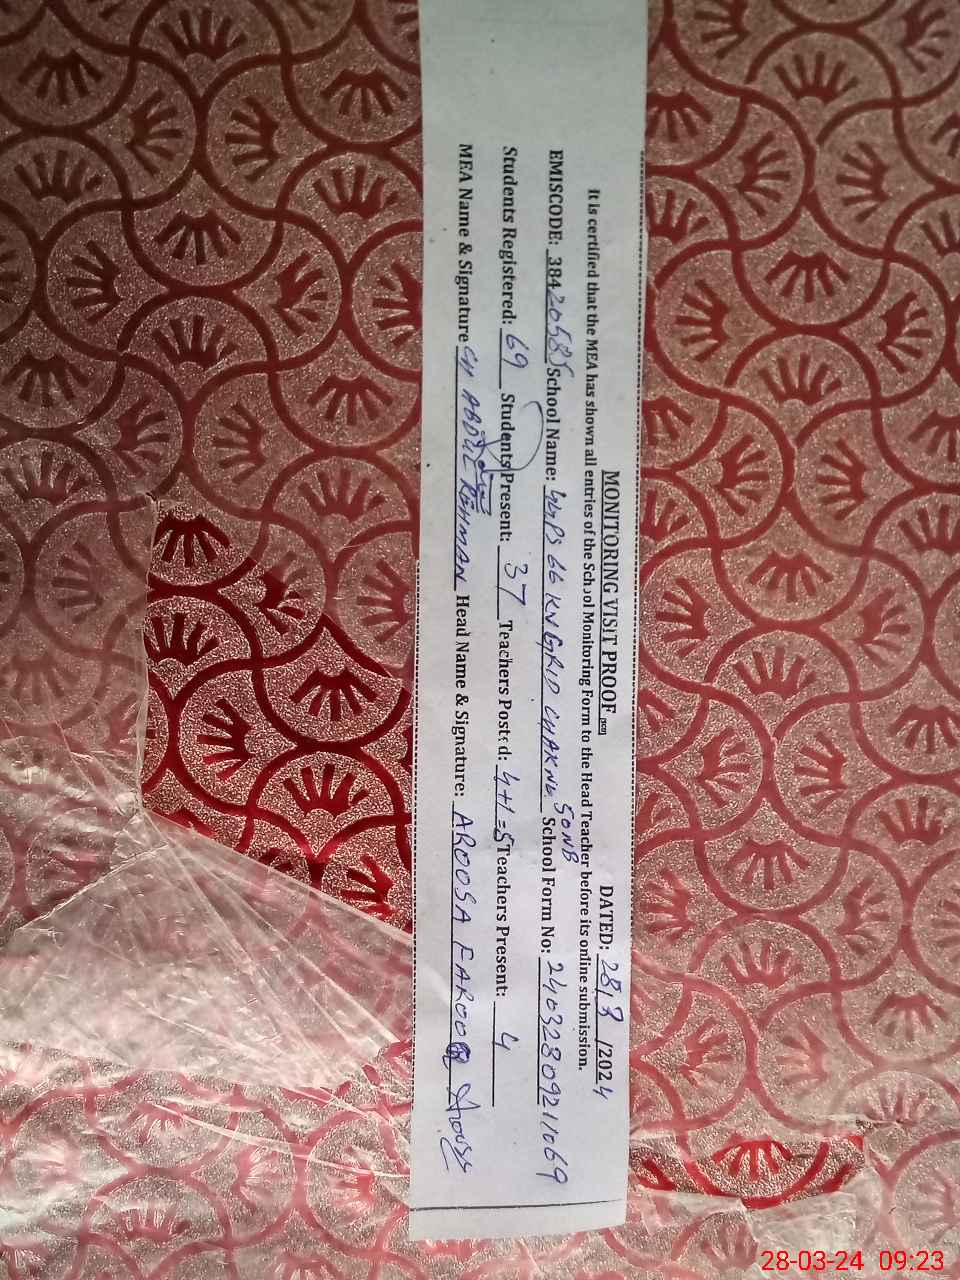 MONITORING VISIT PROOF DATED: 28/3/2024
It is certified that the MEA has shown all entries of the School Monitoring Form to the Head Teacher before its online submission.
EMISCODE: 38420585 School Name: 66 KV GRID CHAK NO 50NB School Form No: 24032809211069
Students Registered: 69 Students Present: 37 Teachers Posted: 4+1=5 Teachers Present: 4
MEA Name & Signature CH ABDUL REHMAN Head Name & Signature: AROOSA FAROOQ
28-03-24 09:23